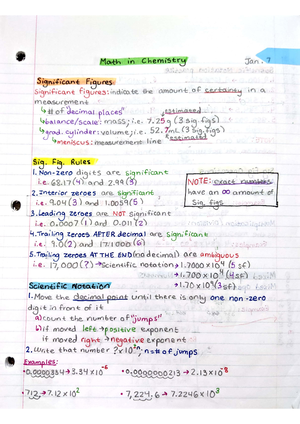 Math in Chemistry
Jan. 7
Significant Figures
significant figures: indicate the amount of certainty in a
measurement
↳ # of "decimal places"
estimated
↳ balance/scale: mass; i.e. 7.25g (3 sig. figs)
↳ grad. cylinder: volume; i.e. 52.7mL (3 sig. figs)
↳ meniscus: measurement line
estimated
Sig. Fig. Rules
1. Non-zero digits are significant
i.e. 62.17(4) and 2.99(3)
2. Interior zeroes are significant
i.e. 9.04(3) and 1.0059(5)
3. Leading zeroes are NOT significant
i.e. 0.0007(1) and 0.011(2)
4. Trailing zeroes AFTER decimal are significant
i.e. 9.0(2) and 17.1000(6)
5. Trailing zeroes AT THE END (no decimal) are ambiguous
i.e. 17,000(?) → Scientific notation → 1.7000 × 10⁴ (5 SF)
→ 1.700 × 10⁴ (4 SF)
→ 1.70 × 10⁴ (3 SF)
NOTE: exact numbers
have an ∞ amount of
sig. figs
Scientific Notation
1. Move the decimal point until there is only one non-zero
digit in front of it
a) count the number of "jumps"
b) if moved left → positive exponent
if moved right → negative exponent
2. Write that number ? × 10ⁿ; n = # of jumps
Examples:
• 0.00000334 → 3.34 × 10⁻⁶
• 0.0000000213 → 2.13 × 10⁻⁸
• 712 → 7.12 × 10²
• 7,224.6 → 7.2246 × 10³